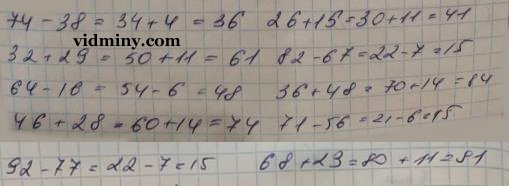 74 - 38 = 34 + 4 = 36   26 + 15 = 30 + 11 = 41
vidminy.com
32 + 29 = 50 + 11 = 61   82 - 67 = 22 - 7 = 15
64 - 16 = 54 - 6 = 48   36 + 48 = 70 + 14 = 84
46 + 28 = 60 + 14 = 74   71 - 56 = 21 - 6 = 15
92 - 77 = 22 - 7 = 15   68 + 23 = 80 + 11 = 81